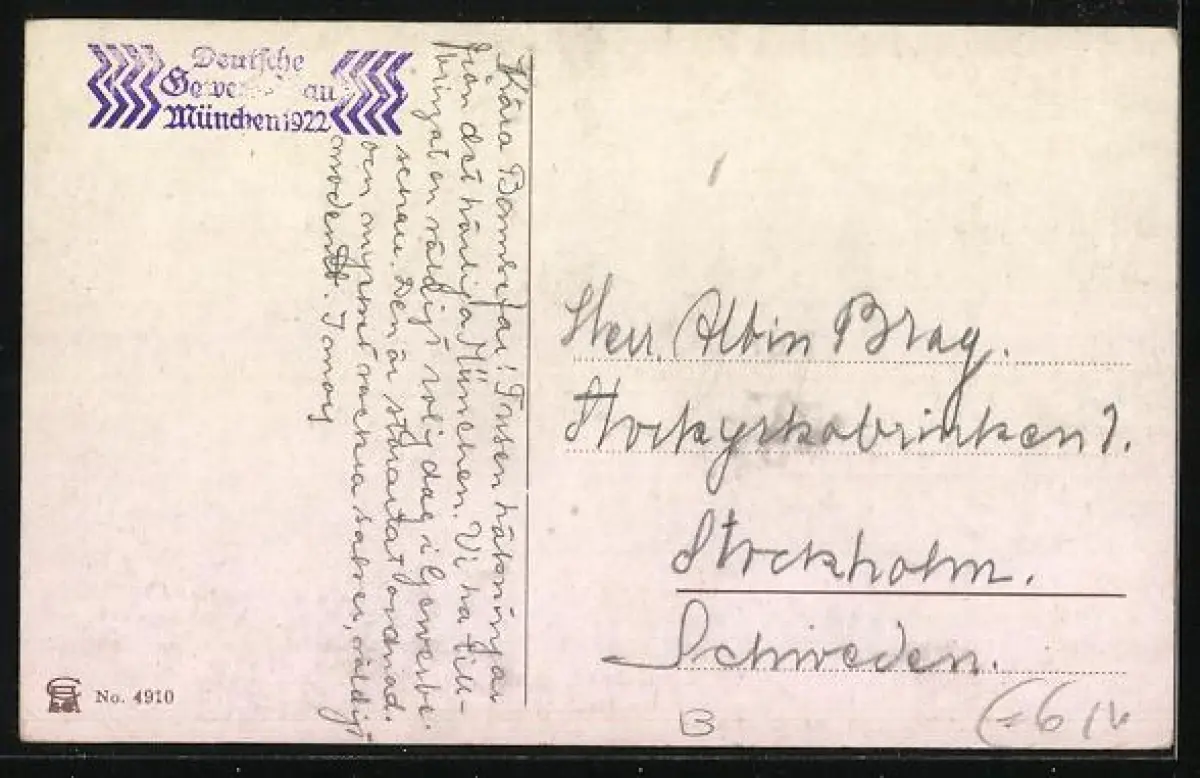 Deutsche
München 1922
Kära Tusen hälsningar
från det härliga München. Vi ha till-
bringat en väldigt rolig dag i Gewerbe-
schau. Den är storartat ordnad.
och mycket vackra saker, väldigt
modernt.
Herr. Albin Brag.
Storkyrkobrinken
Stockholm.
Schweden.
No. 4910
B